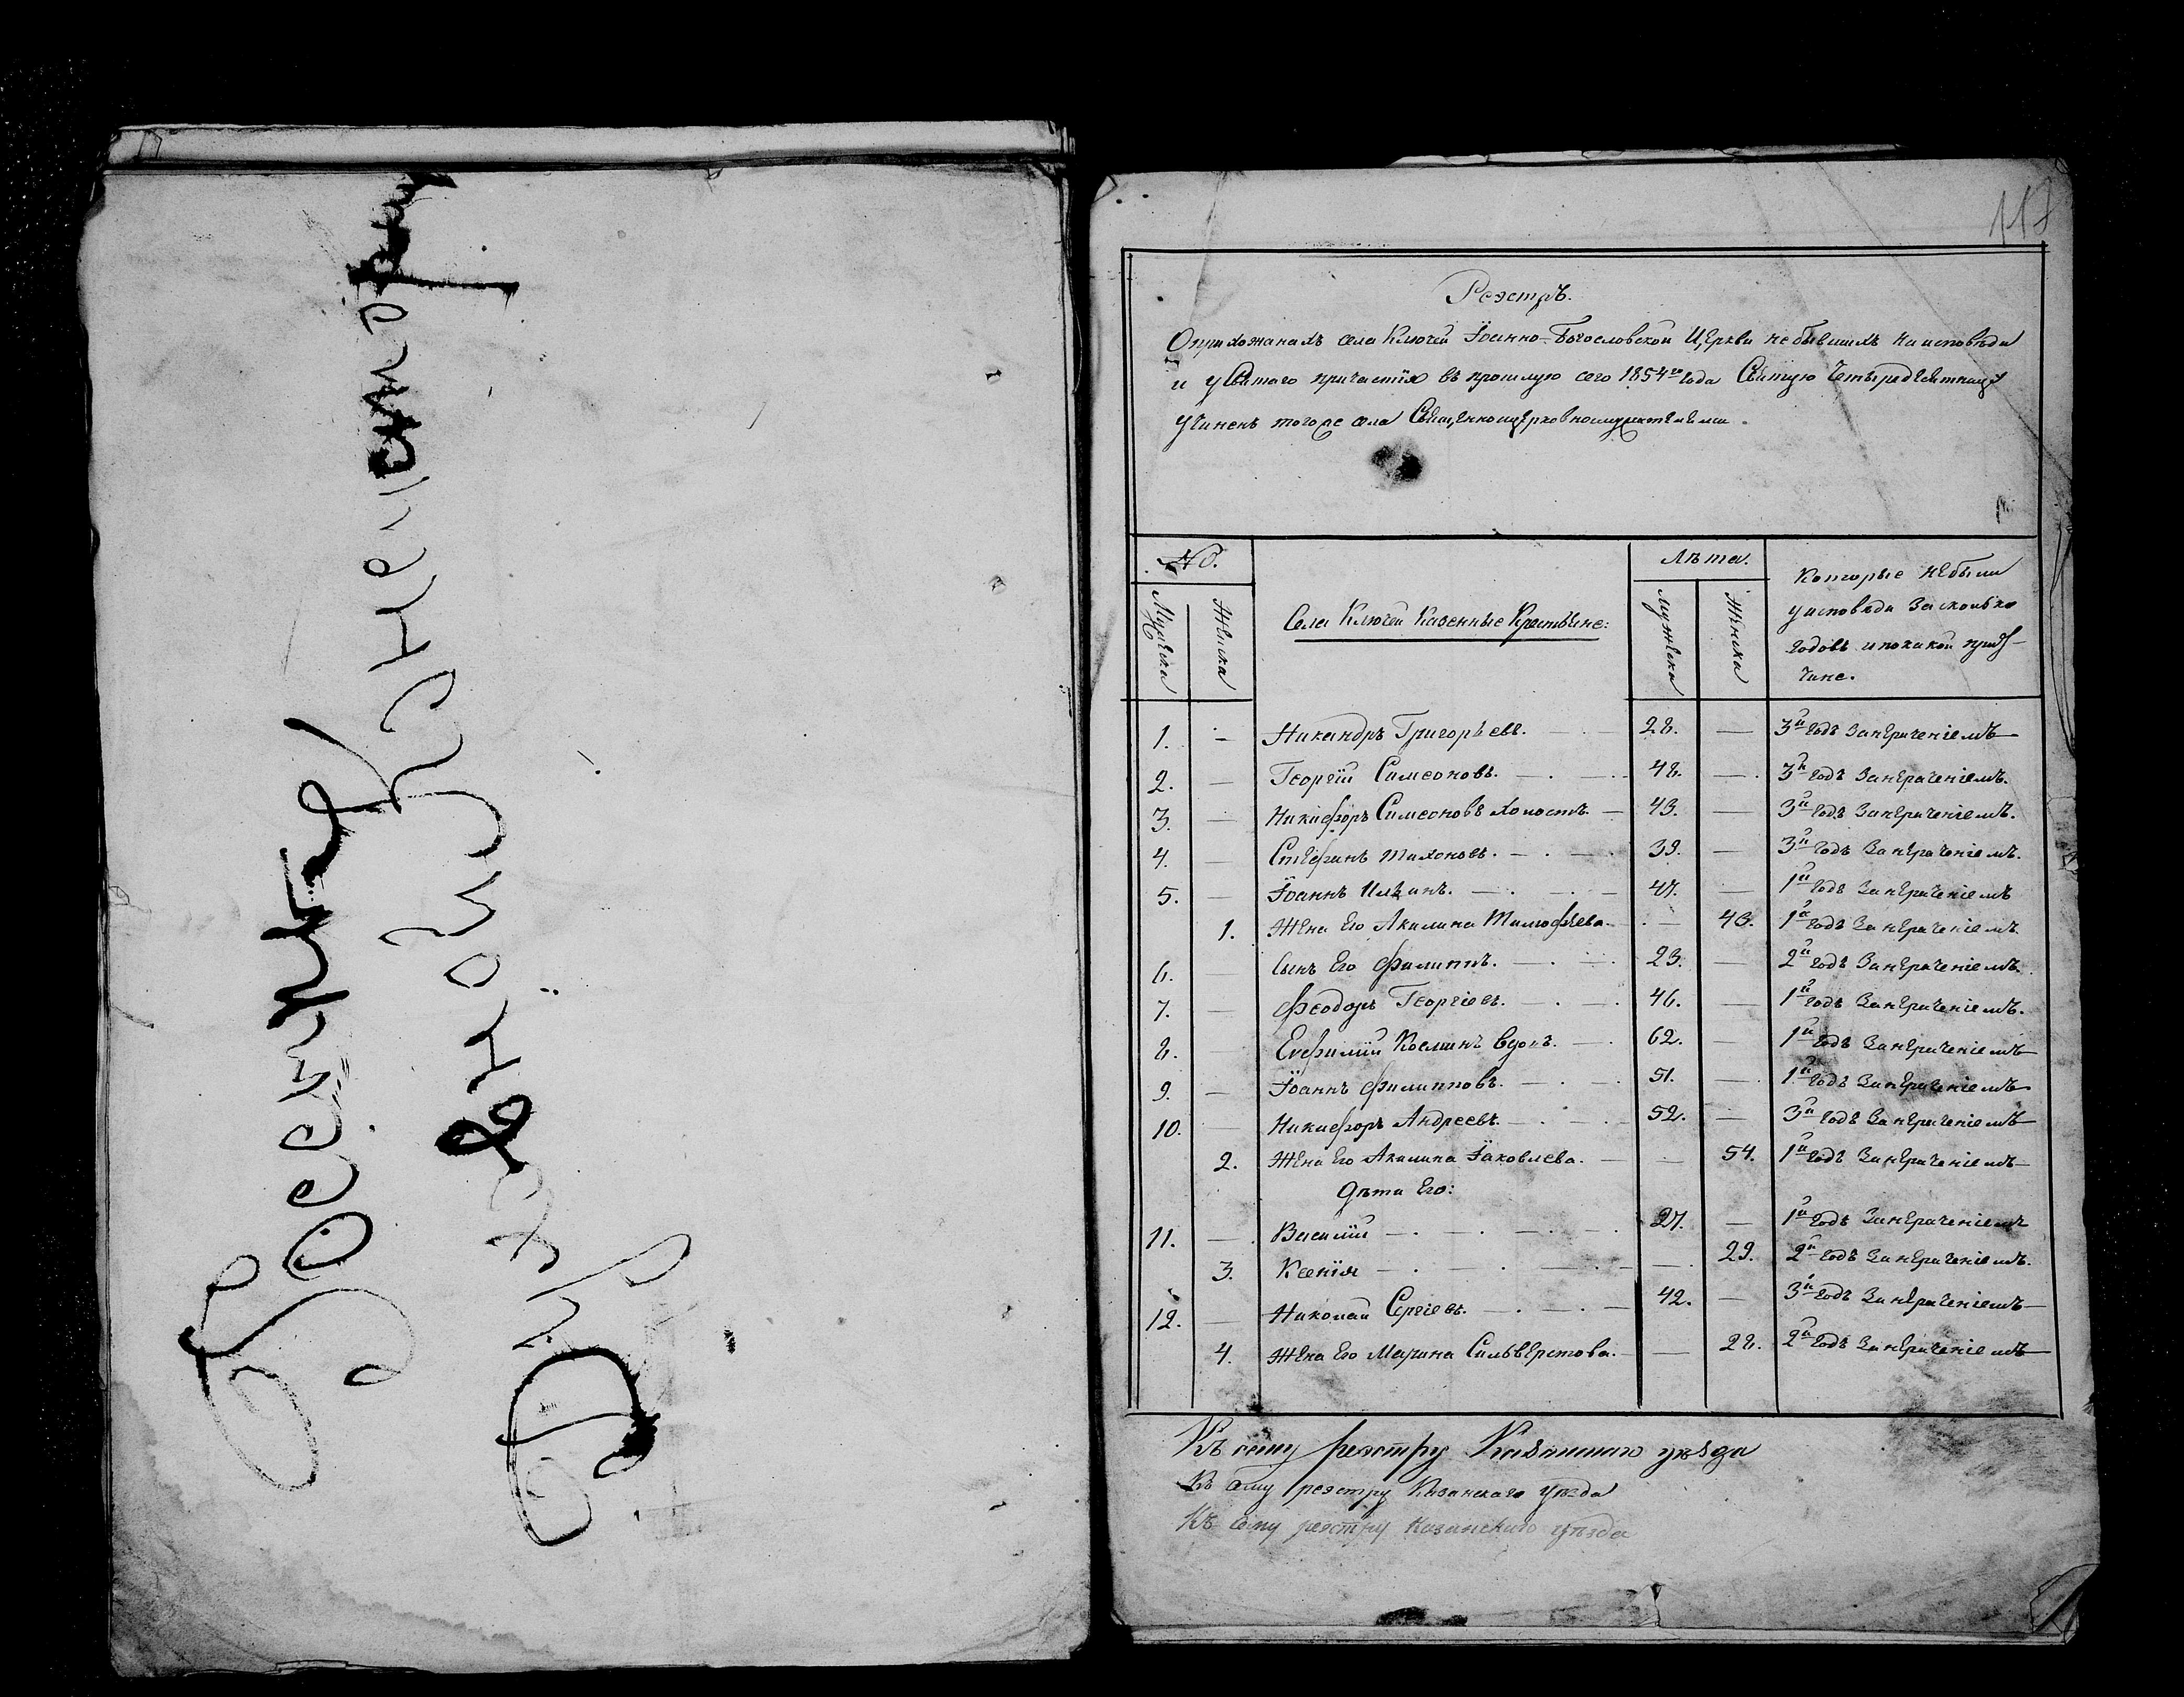 117
Реэстръ.
О прихожанахъ села Ключей Іоанно-Богословской Церкви не бывшихъ на исповѣди
и у Святаго причастія въ прошлую сего 1854го года Святую Четыредесятницу
учиненъ того же села Священноцерковнослужителями.
№.
Мужеска
Женска
Села Ключей Казенные Крестьяне:
Лѣта.
мужеска
Женска
Которые не были
у исповѣди за сколько
годовъ и по какой при-
чине.
1. — Никандръ Григорьевъ. 28. — 3й годъ за нераченіемъ
2. — Георгій Симеоновъ. 48. — 3й годъ за нераченіемъ.
3. — Никифоръ Симеоновъ холостъ. 43. — 3й годъ за нераченіемъ.
4. — Стефанъ Тихоновъ. 39. — 3й годъ за нераченіемъ.
5. — Іоаннъ Ильинъ. 47. — 1й годъ за нераченіемъ
1. Жена Его Акилина Тимофѣева. — 43. 1й годъ за нераченіемъ
6. Сынъ Его Филиппъ. 23. — 2й годъ за нераченіемъ.
7. — Феодоръ Георгіевъ. 46. — 1й годъ за нераченіемъ.
8. — Евфимій Косминъ вдовъ. 62. — 1й годъ за нераченіемъ
9. — Іоаннъ Филипповъ. 51. — 1й годъ за нераченіемъ
10. — Никифоръ Андреевъ. 52. — 3й годъ за нераченіемъ
2. Жена Его Акилина Іаковлева. — 54. 1й годъ за нераченіемъ
Дѣти Его:
11. — Василій 27. — 1й годъ за нераченіемъ
3. Ксенія — 29. 2й годъ за нераченіемъ.
12. — Николай Сергіевъ. 42. — 3й годъ за нераченіемъ
4. Жена Его Марина Сильверстова. — 28. 2й годъ за нераченіемъ
Къ сему реэстру Казанскаго уѣзда
Къ сему реэстру Казанскаго уѣзда
Къ сему реэстру Казанскаго уѣзда